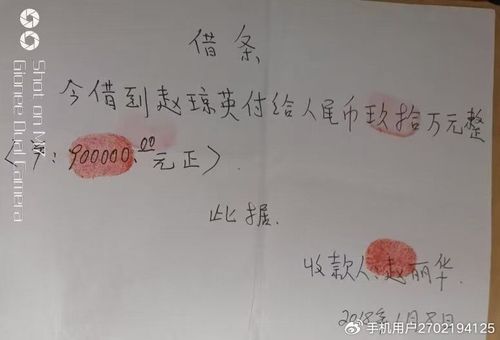 借条
今借到赵琼英付给人民币玖拾万元整
(¥:900000.00元正).
此据.
收款人:赵丽华.
2018年1月8日
Shot on M7
Gionee Dual Camera
@手机用户2702194125